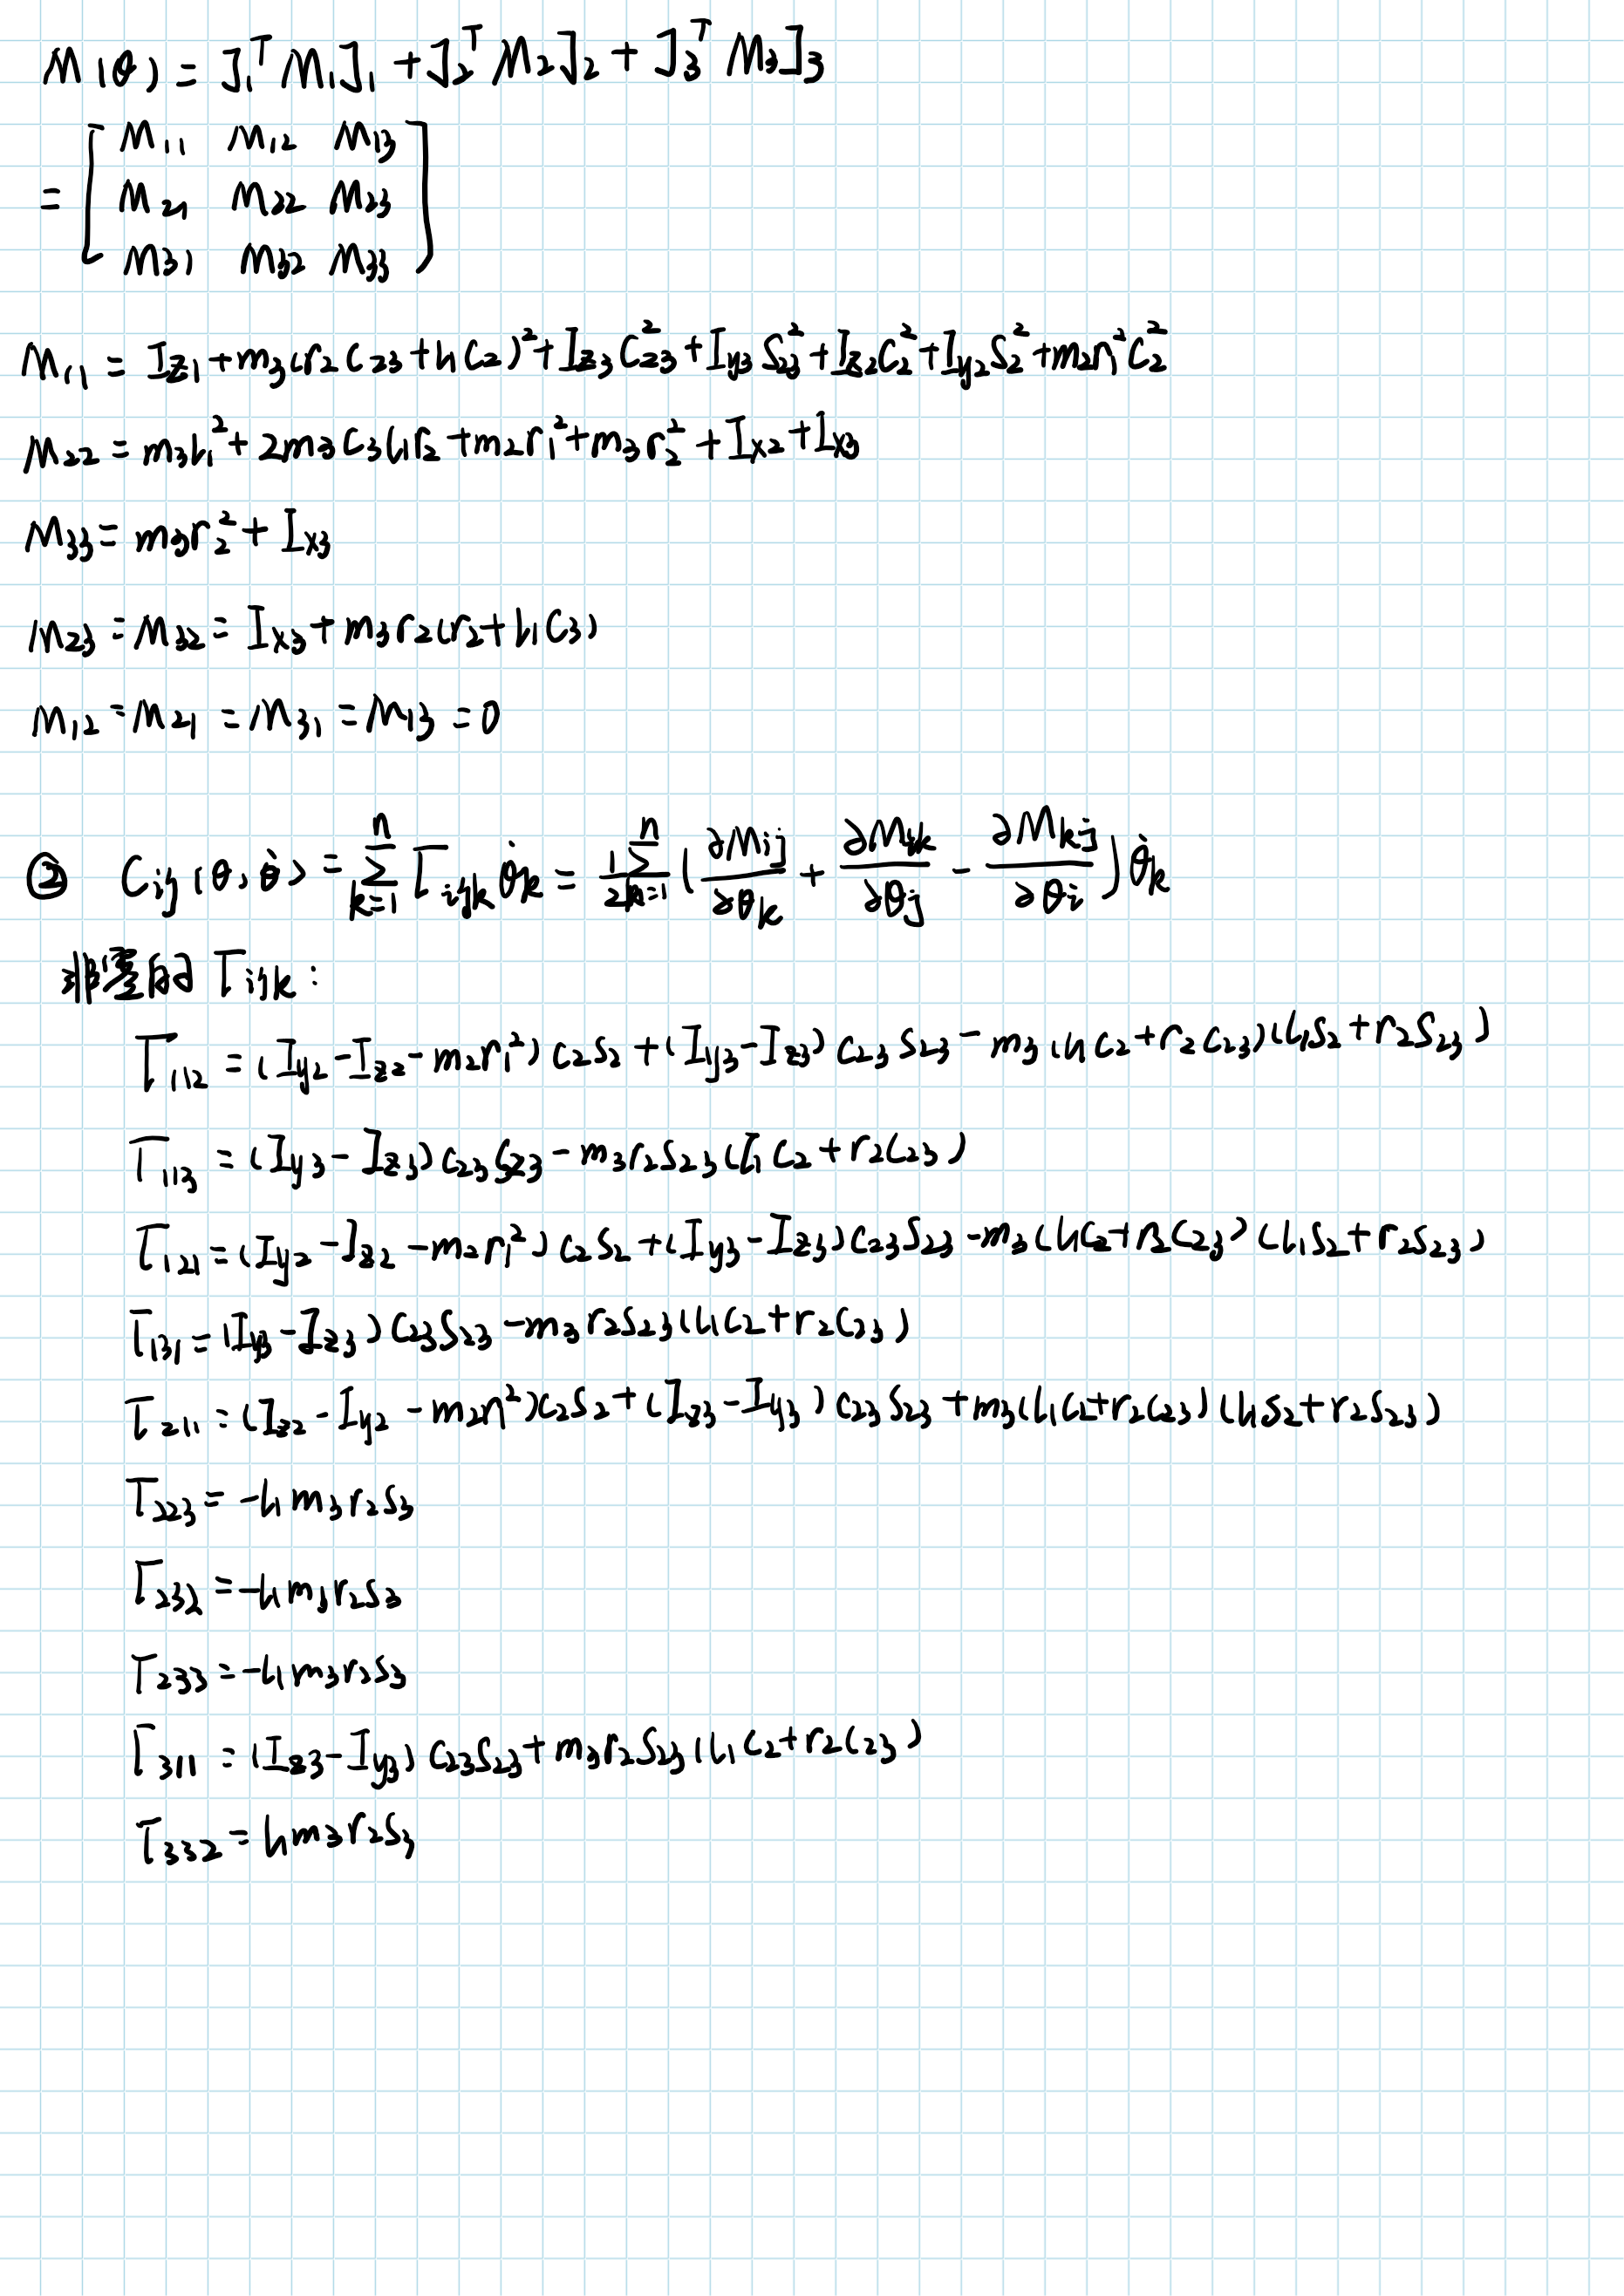 M(θ) = J₁ᵀ M₁ J₁ + J₂ᵀ M₂ J₂ + J₃ᵀ M₃ J₃
= [ M₁₁ M₁₂ M₁₃
M₂₁ M₂₂ M₂₃
M₃₁ M₃₂ M₃₃ ]
M₁₁ = I_z1 + m₃(r₂C₂₃ + l₁C₂)² + I_z3 C₂₃² + I_y3 S₂₃² + I_z2 C₂² + I_y2 S₂² + m₂r₁²C₂²
M₂₂ = m₃l₁² + 2m₃C₃l₁r₂ + m₂r₁² + m₃r₂² + I_x2 + I_x3
M₃₃ = m₃r₂² + I_x3
M₂₃ = M₃₂ = I_x3 + m₃r₂(r₂ + l₁C₃)
M₁₂ = M₂₁ = M₃₁ = M₁₃ = 0
② C_ij(θ, θ̇) = Σ_{k=1}^{n} Γ_ijk θ̇_k = 1/2 Σ_{k=1}^{n} (∂M_ij/∂θ_k + ∂M_ik/∂θ_j - ∂M_kj/∂θ_i) θ̇_k
非零的 Γ_ijk:
Γ₁₁₂ = (I_y2 - I_z2 - m₂r₁²) C₂S₂ + (I_y3 - I_z3) C₂₃S₂₃ - m₃(l₁C₂ + r₂C₂₃)(l₁S₂ + r₂S₂₃)
Γ₁₁₃ = (I_y3 - I_z3) C₂₃S₂₃ - m₃r₂S₂₃(l₁C₂ + r₂C₂₃)
Γ₁₂₁ = (I_y2 - I_z2 - m₂r₁²) C₂S₂ + (I_y3 - I_z3) C₂₃S₂₃ - m₃(l₁C₂ + r₂C₂₃)(l₁S₂ + r₂S₂₃)
Γ₁₃₁ = (I_y3 - I_z3) C₂₃S₂₃ - m₃r₂S₂₃(l₁C₂ + r₂C₂₃)
Γ₂₁₁ = (I_z2 - I_y2 - m₂r₁²)C₂S₂ + (I_z3 - I_y3) C₂₃S₂₃ + m₃(l₁C₂ + r₂C₂₃)(l₁S₂ + r₂S₂₃)
Γ₂₂₃ = -l₁m₃r₂S₃
Γ₂₃₂ = -l₁m₃r₂S₃
Γ₂₃₃ = -l₁m₃r₂S₃
Γ₃₁₁ = (I_z3 - I_y3) C₂₃S₂₃ + m₃r₂S₂₃(l₁C₂ + r₂C₂₃)
Γ₃₃₂ = l₁m₃r₂S₃